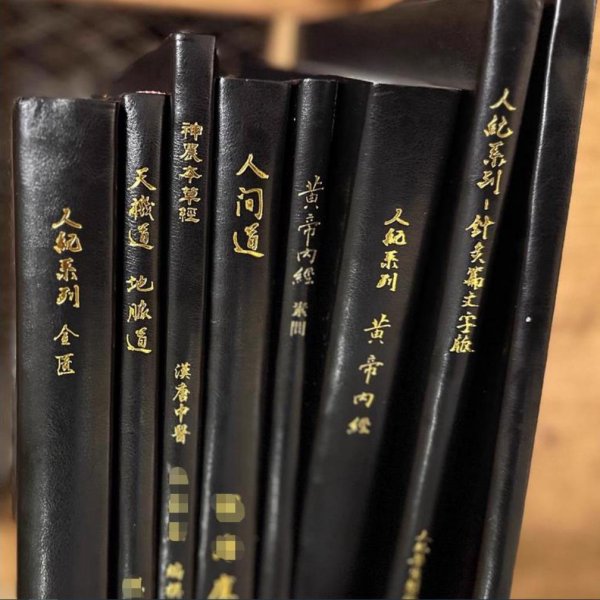 人紀系列 金匱
天機道 地脈道
神農本草經
漢唐中醫
编撰
人间道
黄帝内經 素問
人紀系列 黄帝内經
人紀系列-針灸篇文字版